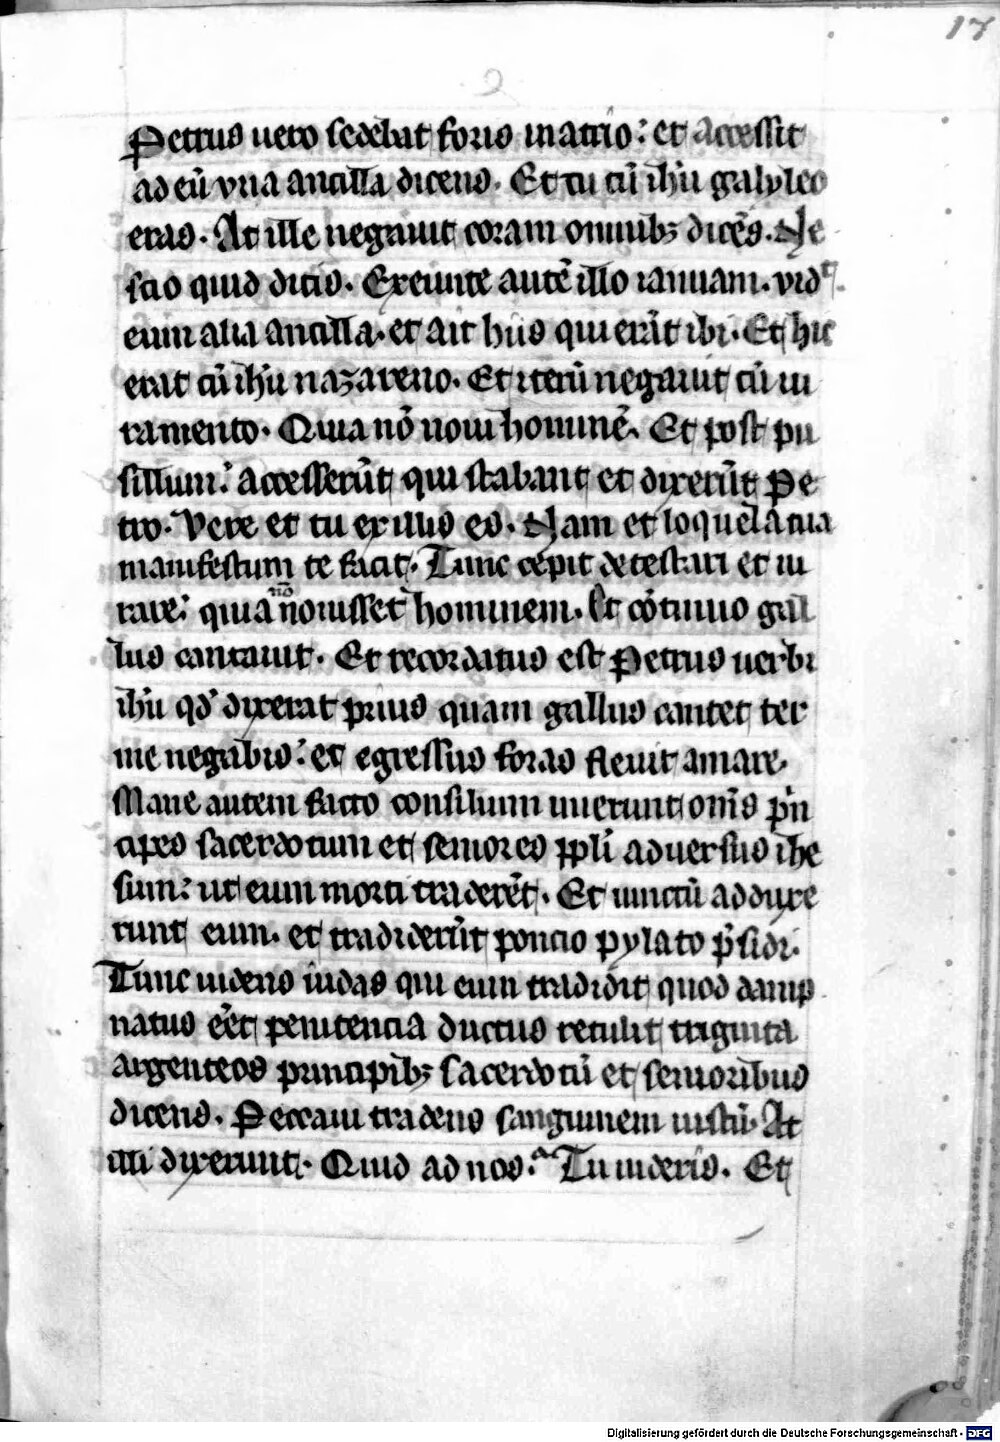 17
2
Petrus uero sedebat foris in atrio: et accessit
ad eū vna ancilla dicens. Et tu cū ih̄u galyleo
eras. At ille negauit coram omnibꝫ dicēs. Ne
scio quid dicis. Exeunte autē illo ianuam. vidᵗ
eum alia ancilla. et ait hiis qui erāt ibi. Et hic
erat cū ih̄u nazareno. Et iterū negauit cū iu
ramento. Quia nō noui hominē. Et post pu
sillum: accesserūt qui stabant et dixerūt Pe
tro. Vere et tu ex illis es. Nam et loquela tua
manifestum te facit. Tunc cepit detestari et iu
rare: quia nō nouisset hominem. Et cōtinuo gal
lus cantauit. Et recordatus est Petrus uerbi
ih̄u qd̄ dixerat prius quam gallus cantet ter
me negabis: et egressus foras fleuit amare.
Mane autem facto consilium inierunt om̄s p̄n
cipes sacerdotum et seniores ppl̄i aduersus ihe
sum: ut eum morti traderēt. Et uinctū adduxe
runt eum. et tradiderūt poncio pylato p̄sidi.
Tunc uidens iudas qui eum tradidit quod damp
natus eēt penitencia ductus retulit triginta
argenteos principibꝫ sacerdotū et senioribus
dicens. Peccaui tradens sanguinem iustū. At
illi dixerunt. Quid ad nos. Tu uideris. Et
Digitalisierung gefördert durch die Deutsche Forschungsgemeinschaft - DFG